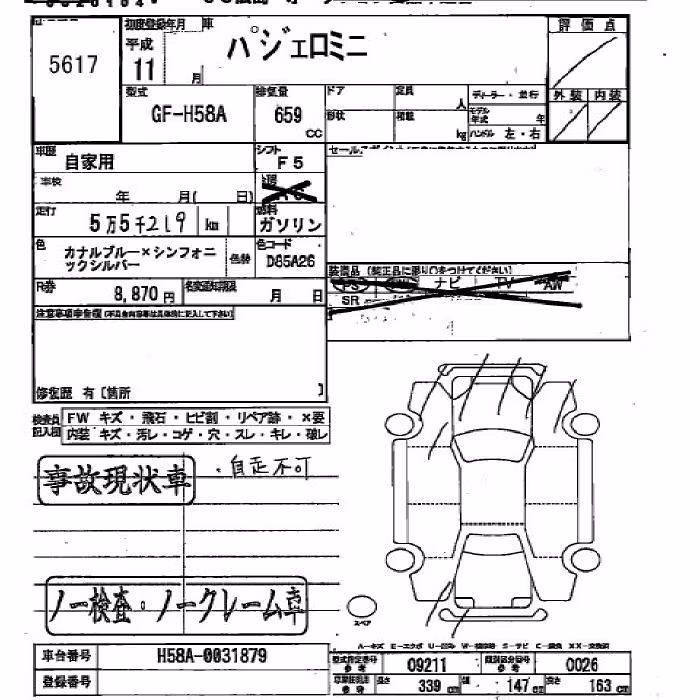 5617
初度登録年月
平成
11 月
車
パジェロミニ
評価点
外装 内装
型式
GF-H58A
排気量
659
CC
ドア
定員
人
形状
積載
kg
ディーラー・並行
モデル
年式 年
ハンドル 左・右
車歴
自家用
シフト
F5
車検
年 月( 日)
走行
5万5千219 km
燃料
ガソリン
色
カナルブルー×シンフォニ
ックシルバー
色替
色コード
D85A26
R券
8,870 円
名変期限
月 日
装備品 (純正品に限り○をつけてください)
PS ナビ TV AW
SR
注意事項申告欄 (不具合内容等は具体的に記入して下さい)
修復歴 有〔箇所 〕
検査員
記入欄
FW キズ・飛石・ヒビ割・リペア跡・×要
内装 キズ・汚レ・コゲ・穴・スレ・キレ・破レ
事故現状車
・自走不可
ノー検査・ノークレーム車
スペア
車台番号
H58A-0031879
登録番号
型式指定番号
参考
09211
類別区分番号
参考
0026
長さ
339 cm
幅
147 cm
高さ
163 cm